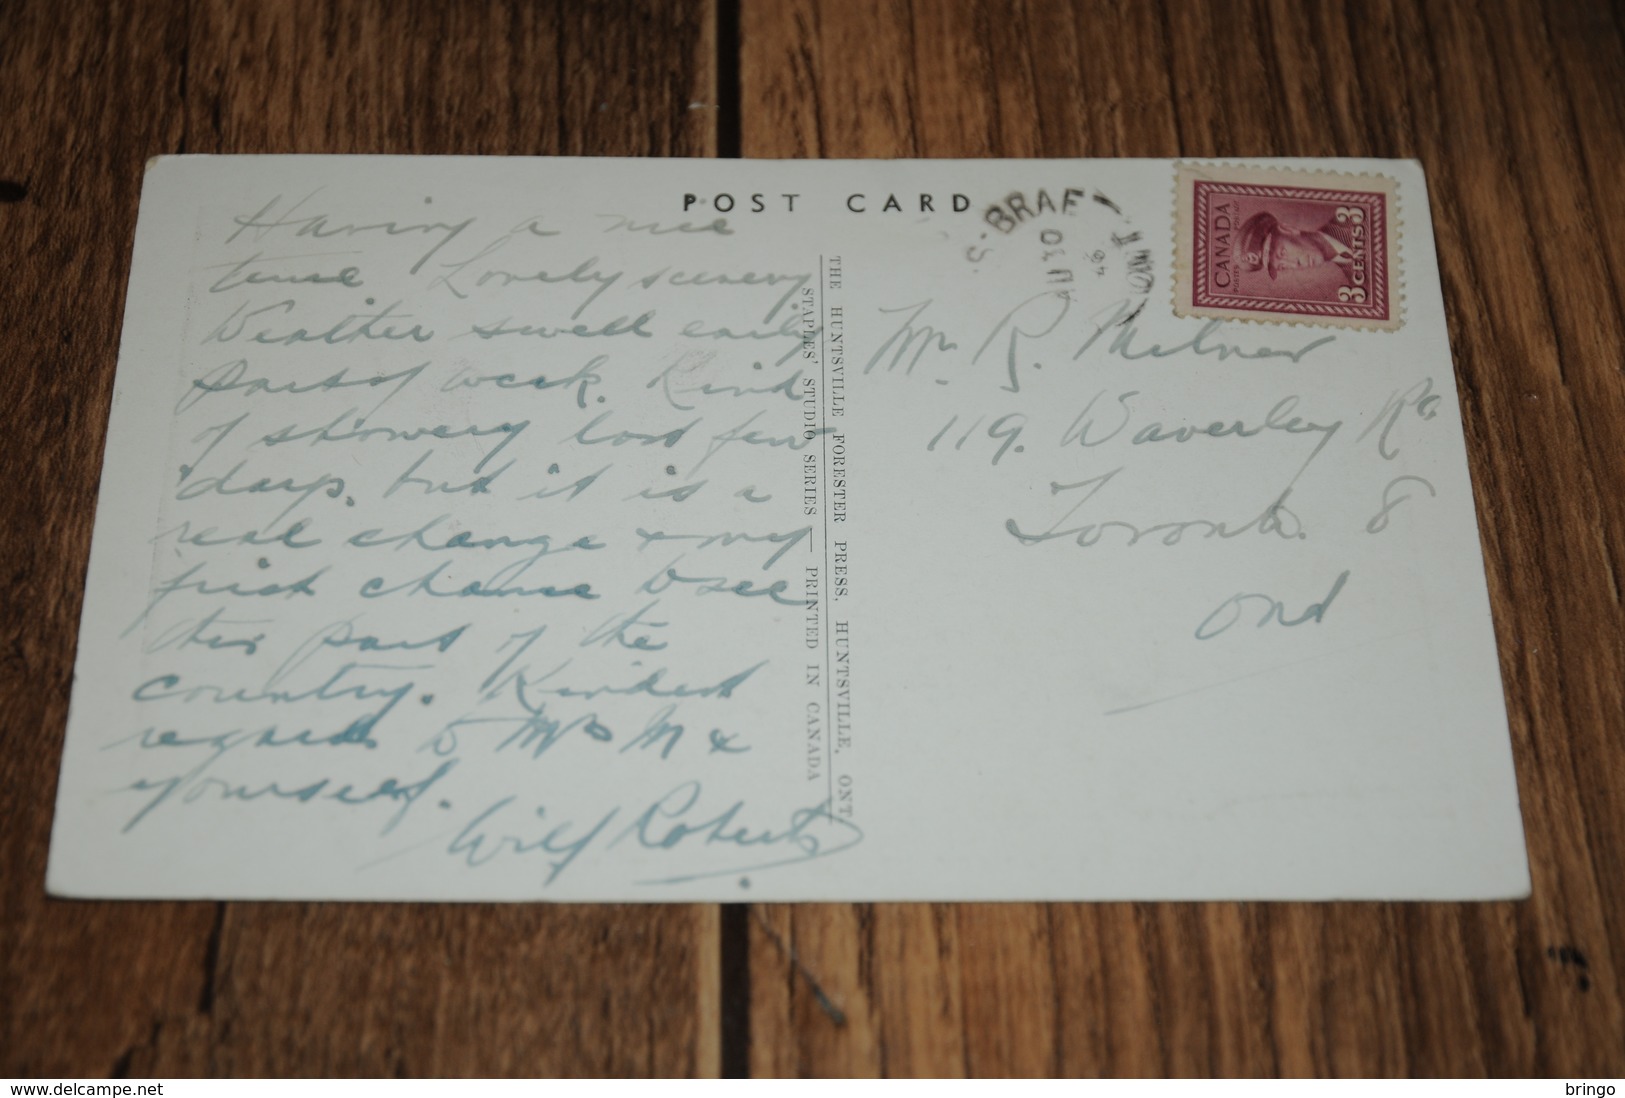 POST CARD
Having a nice
time Lovely scenery
Weather swell early
part of week. Kind
of showery last few
days. but it is a
real change & my
first chance to see
this part of the
country. Kindest
regards to Mrs M &
yourself.
Wilf Roberts
THE HUNTSVILLE FORESTER PRESS, HUNTSVILLE, ONT.
STAPLES' STUDIO SERIES — PRINTED IN CANADA
S. BRAE
ONT
46
CANADA
3 CENTS 3
Mr. R. Milner
119. Waverley Rd
Toronto. 8
Ont
delcampe.net
bringo